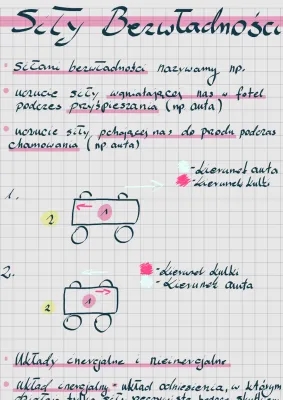 Siły Bezwładności
• siłami bezwładności nazywamy np.
• uczucie siły wgniatającej nas w fotel
podczas przyśpieszania (np auta)
• uczucie siły pchającej nas do przodu podczas
chamowania (np auta)
- kierunek auta
- kierunek kulki
1.
2
1
2.
- kierunek kulki
- kierunek auta
2
1
• Układy inercjalne i nieinercjalne
• układ inercjalny - układ odniesienia, w którym
działają tylko siły